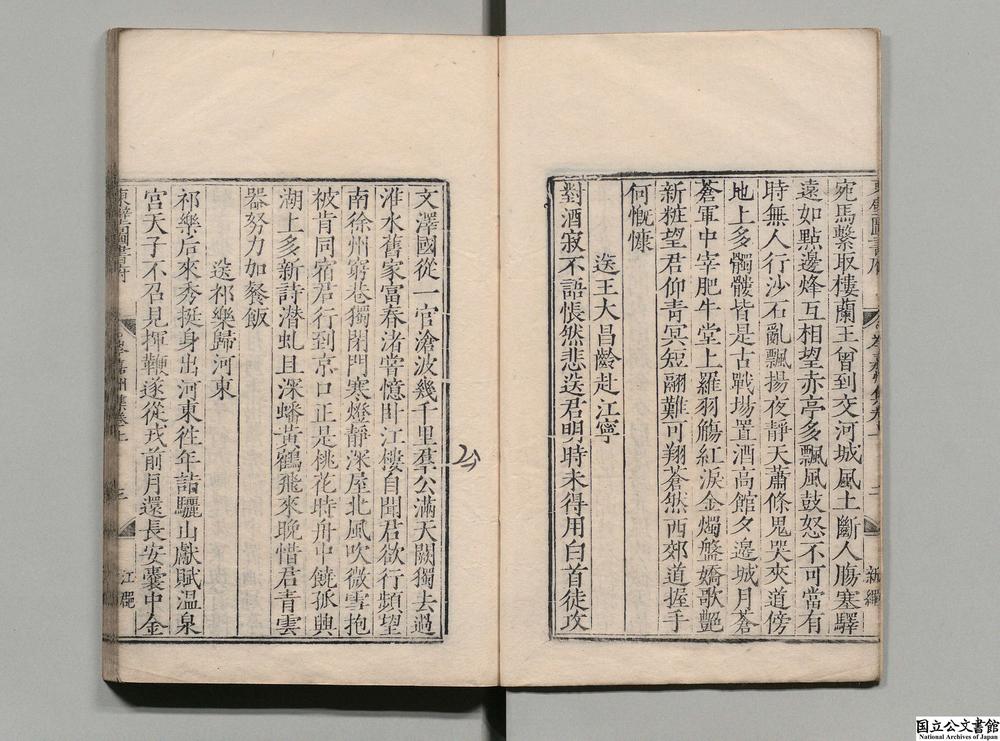 宛馬繫取樓蘭王曾到交河城風土斷人腸塞驛
遠如點邊烽互相望赤亭多飄風鼓怒不可當有
時無人行沙石亂飄揚夜靜天蕭條鬼哭夾道傍
地上多髑髏皆是古戰場置酒高館夕邊城月蒼
蒼軍中宰肥牛堂上羅羽觴紅淚金燭盤嬌歌艷
新粧望君仰青冥短翮難可翔蒼然西郊道握手
何慨慷
送王大昌齡赴江寧
對酒寂不語悵然悲送君明時未得用白首徒攻
文澤國從一官滄波幾千里羣公滿天闕獨去過
淮水舊家富春渚嘗憶臥江樓自聞君欲行頻望
南徐州窮巷獨閉門寒燈靜深屋北風吹微雪抱
被肯同宿君行到京口正是桃花時舟中饒孤興
湖上多新詩潛虬且深蟠黃鶴飛來晚惜君青雲
器努力加餐飯
送祁樂歸河東
祁樂后來秀挺身出河東徃年詣驪山獻賦溫泉
宮天子不召見揮鞭遂從戎前月還長安囊中金
東壁圖書府
三
国立公文書館
National Archives of Japan